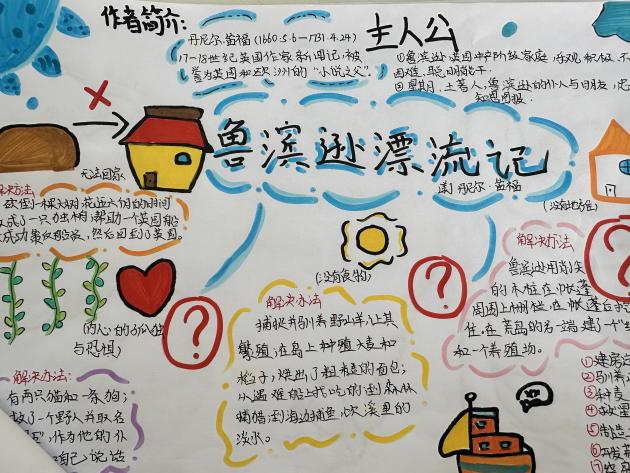 作者简介:
丹尼尔.笛福(1660.5.6—1731.4.24)
17-18世纪英国作家,新闻记,被
誉为英国和欧洲的"小说之父"。
主人公
①鲁滨逊:英国中产阶级家庭,乐观,积极,不
困难,聪明能干。
②星期五:土著人,鲁滨逊的仆人与朋友,忠
知恩图报.
鲁滨逊漂流记
[英]丹尼尔·笛福
无法回家
(没有地方住)
解决办法:
砍倒一棵大树,花五六个月的时间
做成了一只独木舟,帮助一个英国船
长成功重夺船只,然后回到了英国。
(没有食物)
?
?
?
(内心的孤独
与恐惧)
解决办法
捕捉并驯养野山羊,让其
繁殖;在岛上种植大麦和
稻子,烘出了粗糙的面包;
从遇难船上找吃的;到森林
捕猎;到海边捕鱼,饮溪里的
淡水。
解决办法
鲁滨逊用削尖
的木桩在帐篷
周围上栅栏,在帐篷后
住,在荒岛的另一端建了个
和一个养殖场。
解决办法:
有两只猫和一条狗;
救了一个野人并取名
作为他的仆
自己说话
①建房
②驯养
③种麦
④
⑤制造
⑥开发
⑦